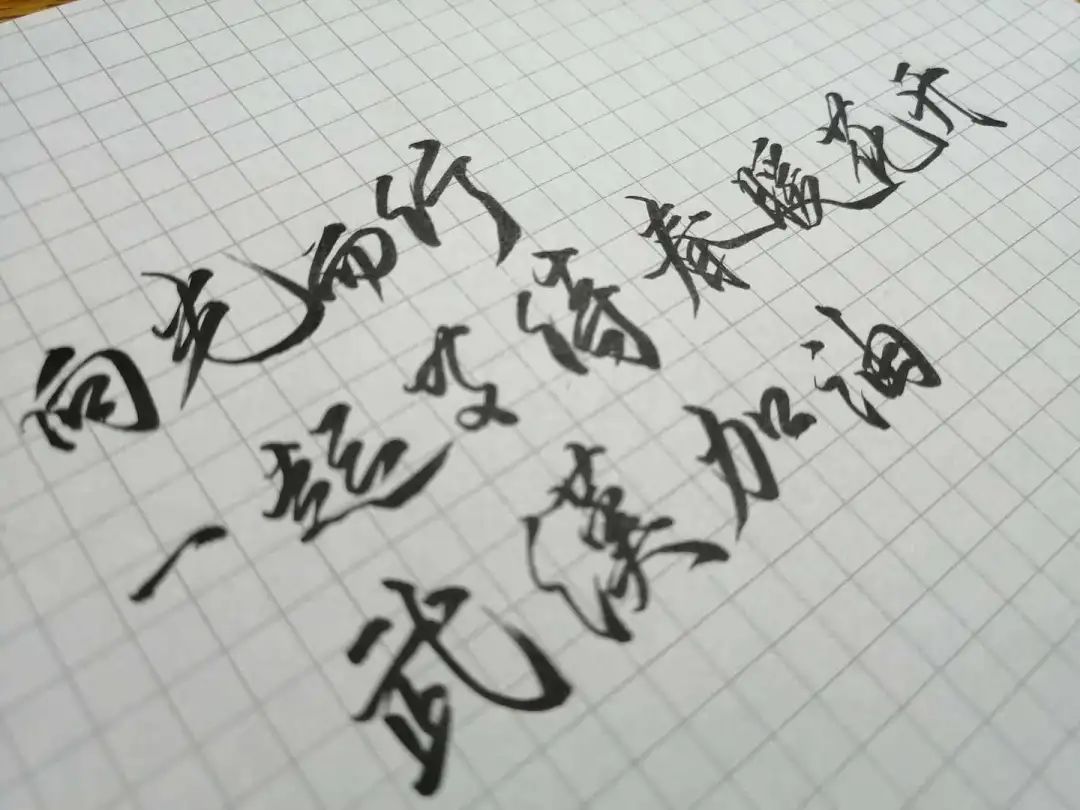 向光而行
一起步待春暖花开
武汉加油